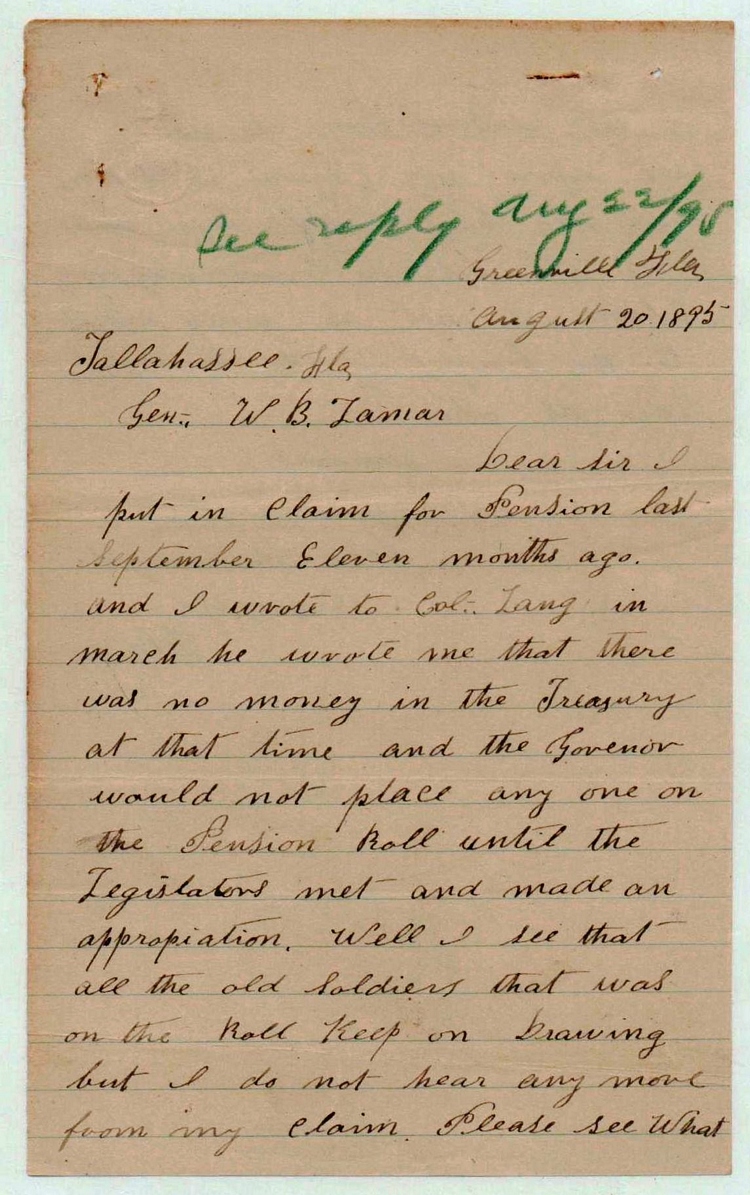 See reply Aug 22/95
Greenville Fla,
August 20 1895
Tallahassee. Fla,
Gen., W. B. Lamar
Dear sir I
put in Claim for Pension last
September Eleven months ago.
and I wrote to Col. Lang in
march he wrote me that there
was no money in the Treasury
at that time and the Govenor
would not place any one on
the Pension Roll until the
Legislators met and made an
appropiation. Well I see that
all the old Soldiers that was
on the Roll Keep on Drawing
but I do not hear any move
from my Claim. Please see What